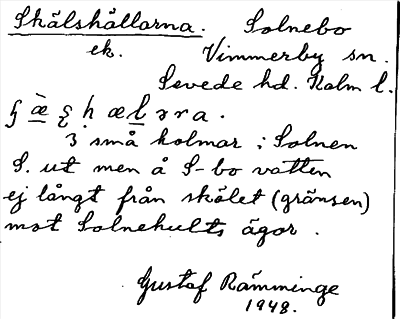 Skälshällarna. Solnebo
ek. Vimmerby sn.
Sevede hd. Kalm l.
ʂ æ̀ ʂ h æ l ə r a.
3 små holmar i Solnen
S. ut men å S-bo vatten
ej långt från skälet (gränsen)
mot Solnehults ägor.
Gustaf Ramminge
1948.